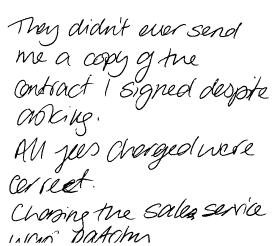 They didn't ever send
me a copy of the
contract I signed despite
asking.
All fees charged were
correct.
Chasing the sales service
was patchy